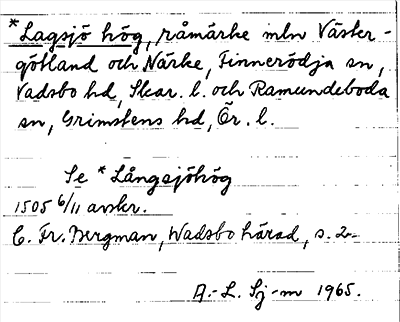 *Lagsjö hög, råmärke mln Väster-
götland och Närke, Finnerödja sn,
Vadsbo hd, Skar. l. och Ramundeboda
sn, Grimstens hd, Ör. l.
Se *Långsjöhög
1505 6/11 avskr.
C. Fr. Bergman, Wadsbo härad, s. 2
A.-L. Sj-m 1965.